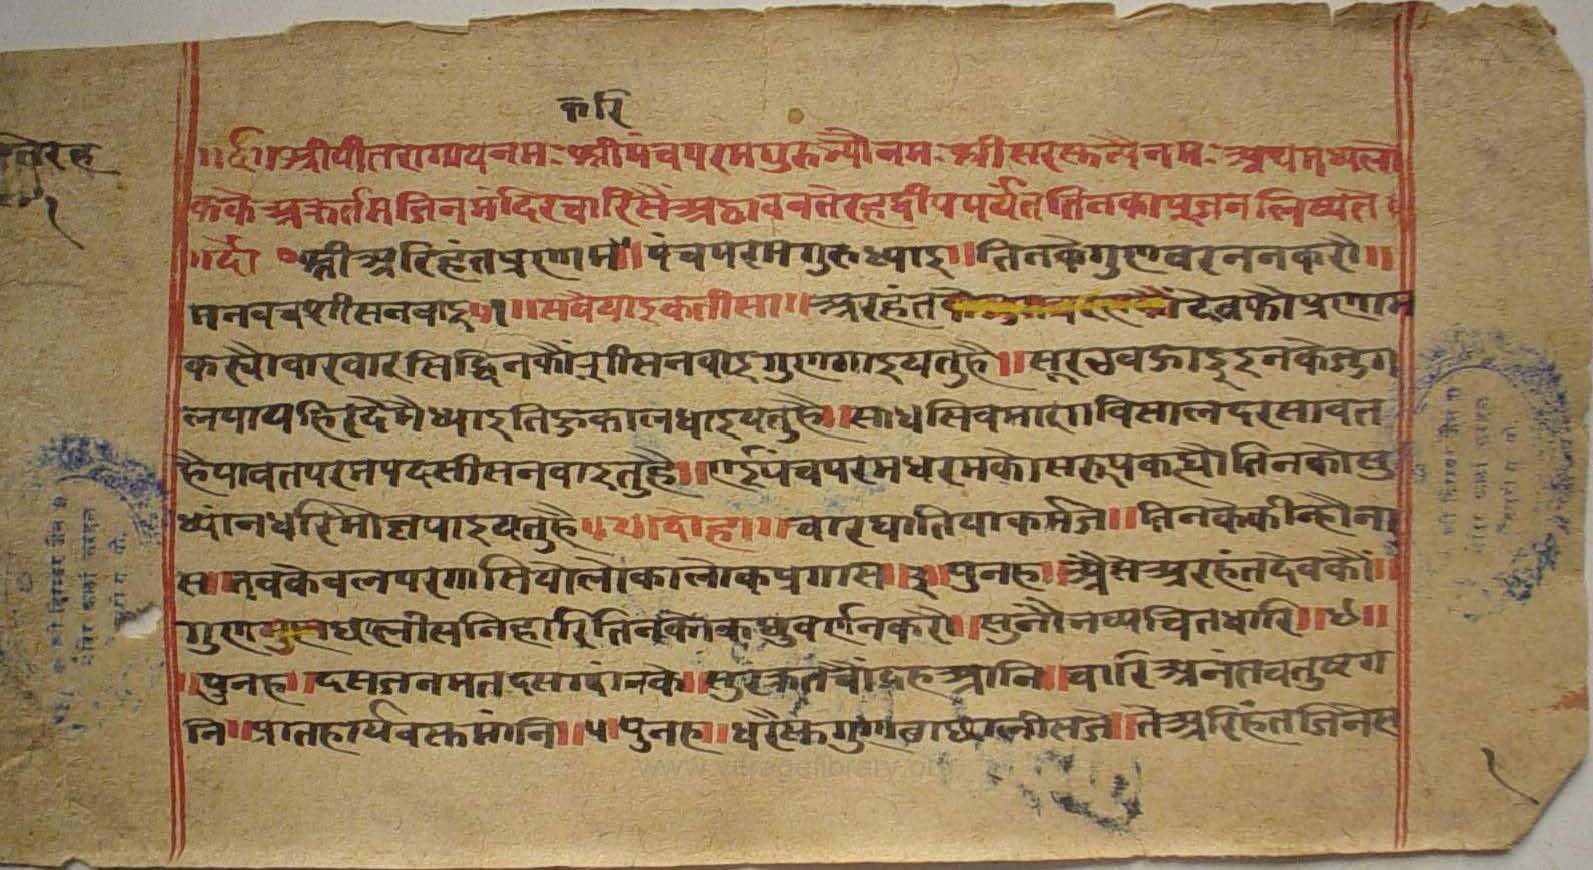 करि
तेरह
॥र्द॥श्रीवीतरागायनमः श्रीपंचपरमगुरुभ्यौनमः श्रीसरस्वत्यैनमः अथमध्यलो
ककेअकर्तमजिनमंदिरचारिसैंअठावनतेरहद्वीपपर्यंततिनकापूजनलिष्यते॥
॥दो॰ श्रीअरिहंतप्रणमौ॥पंचपरमगुरुध्याइ॥तिनकेगुणवरननकरौ॥
मनवचशीसनवाइ१॥सवैयाइकतीसा॥अरहंत देवकौप्रणाम
कस्यौवारवारसिद्धिनकौंशीसनवाइगुणगाइयतुहै॥सूरउवझाइइनकेजुग
लपायहिरदैमैध्याइतिहुकालधाइयतुहै॥साधसिवमारगविसालदरसावत
हैपावतपरमपदसीसनवाइतुहै॥ पंचपरमधरमकोसरूपकह्यौतिनकोसु
ध्यांनधरिमोक्षपाइयतुहै॥२॥दोहा॥चारघातियाकर्मजे॥तिनकेकीन्हौना
स॥तवकेवलपरगासियोलोकालोकप्रगास॥३॥पुनह॥अैसेअरहंतदेवकौं॥
गुण छ्यालीसनिहारि॥तिनकोकछुवर्णनकरौ॥सुनौभव्यचितधारि॥४॥
॥पुनह॥दसजनमतदसग्यांनके॥सुरकृतचौंदहआनि॥चारिअनंतचतुष्टग
नि॥प्रातहार्यवस्तमांनि॥५॥पुनह॥धरैस्कगुण छ्यालीसजे॥तेअरिहंतजिनेस
www.vitragelibrary.org